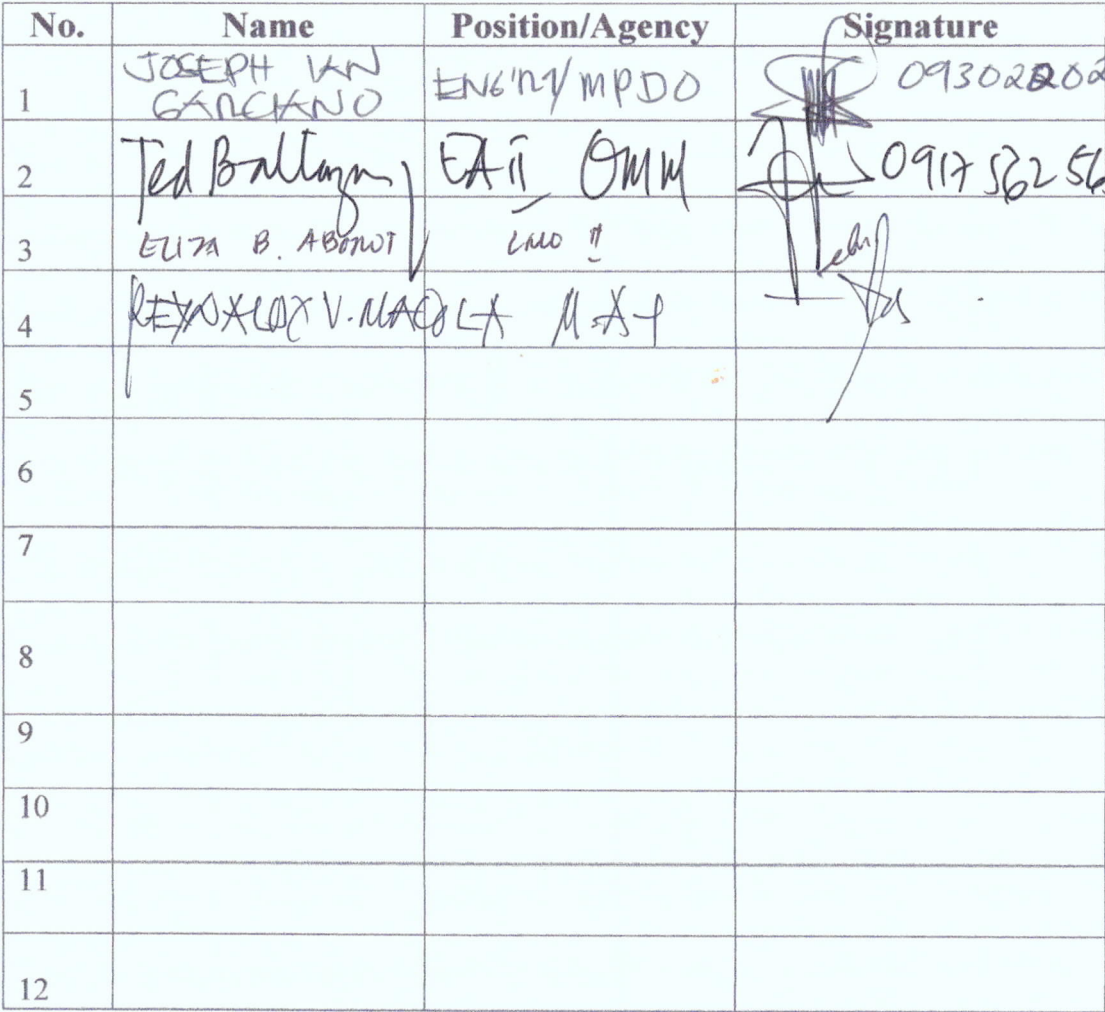 No. Name Position/Agency Signature
1 JOSEPH IAN GARCIANO ENG'RG/MPDO 09302202
2 Ted Baltazar EA II OMM 0917 562 56
3 ELIZA B. ABONOT LMO II
4 V. M
5
6
7
8
9
10
11
12